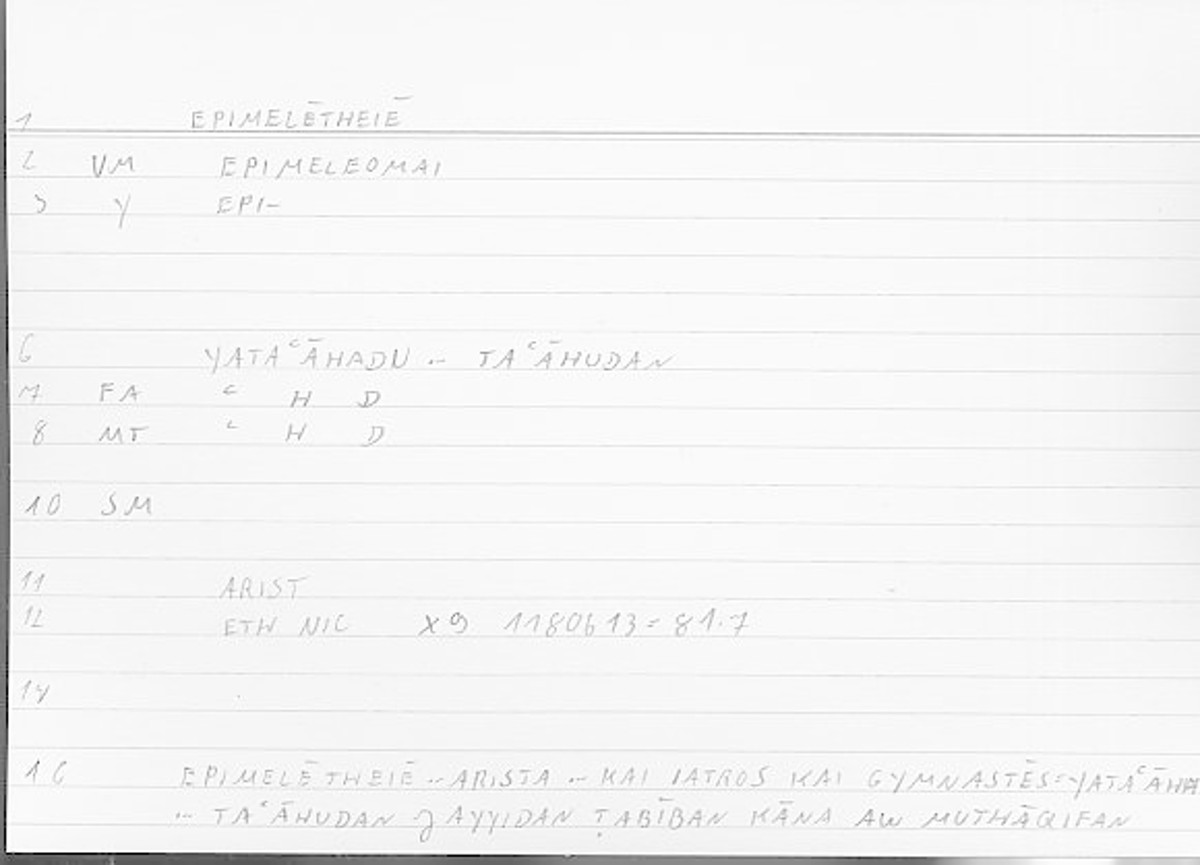 1 EPIMELĒTHEIĒ
2 VM EPIMELEOMAI
3 Y EPI-
6 YATAʿĀHADU .. TAʿĀHUDAN
7 FA ʿ H D
8 MT ʿ H D
10 SM
11 ARIST
12 ETH NIC X9 1180b13=81.7
14
16 EPIMELĒTHEIĒ .. ARISTA .. KAI IATROS KAI GYMNASTĒS=YATAʿĀHA
.. TAʿĀHUDAN ǦAYYIDAN ṬABĪBAN KĀNA AW MUTHĀQIFAN